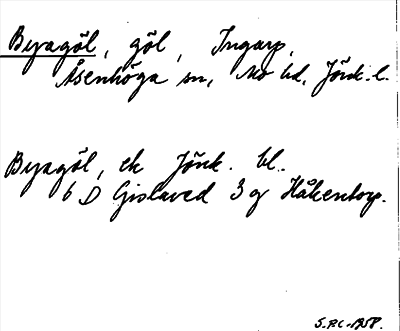 Byagöl, göl, Ingarp,
Åsenhöga sn, Mo hd, Jönk. l.
Byagöl, ek Jönk. bl.
6 D Gislaved 3 g Håkentorp.
S.P.C. 1958.